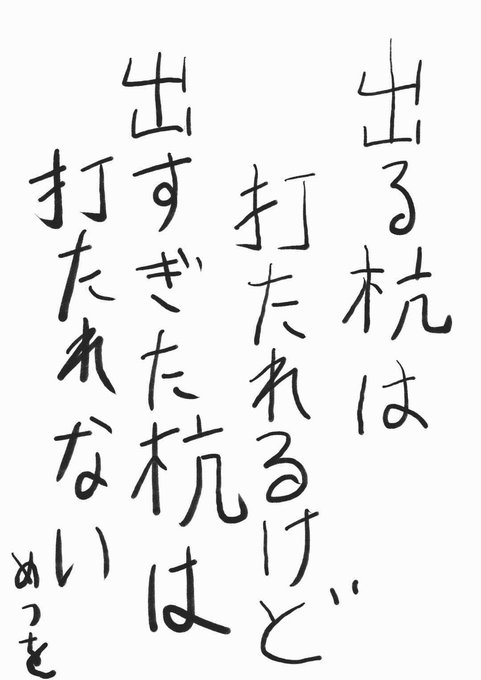 出る杭は
打たれるけど
出すぎた杭は
打たれない
めつを